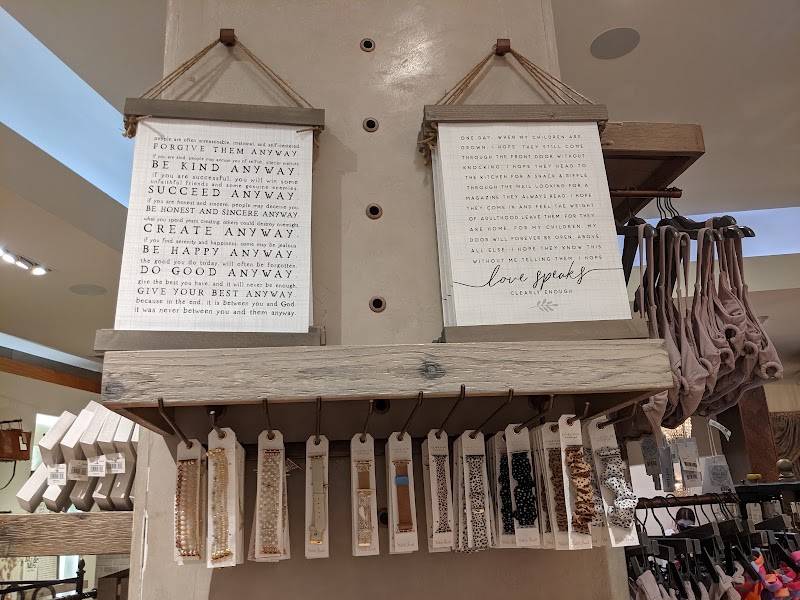 people are often unreasonable, irrational, and self-centered.
FORGIVE THEM ANYWAY.
if you are kind, people may accuse you of selfish, ulterior motives.
BE KIND ANYWAY.
if you are successful, you will win some
unfaithful friends and some genuine enemies.
SUCCEED ANYWAY.
if you are honest and sincere, people may deceive you.
BE HONEST AND SINCERE ANYWAY.
what you spend years creating, others could destroy overnight.
CREATE ANYWAY.
if you find serenity and happiness, some may be jealous.
BE HAPPY ANYWAY.
the good you do today, will often be forgotten.
DO GOOD ANYWAY.
give the best you have, and it will never be enough.
GIVE YOUR BEST ANYWAY.
because in the end, it is between you and God
it was never between you and them anyway.
ONE DAY, WHEN MY CHILDREN ARE
GROWN, I HOPE THEY STILL COME
THROUGH THE FRONT DOOR WITHOUT
KNOCKING. I HOPE THEY HEAD TO
THE KITCHEN FOR A SNACK & RIFLE
THROUGH THE MAIL LOOKING FOR A
MAGAZINE THEY ALWAYS READ. I HOPE
THEY COME IN AND FEEL THE WEIGHT
OF ADULTHOOD LEAVE THEM, FOR THEY
ARE HOME. FOR MY CHILDREN, MY
DOOR WILL FOREVER BE OPEN. ABOVE
ALL ELSE, I HOPE THEY KNOW THIS
WITHOUT ME TELLING THEM. I HOPE
love speaks
CLEARLY ENOUGH